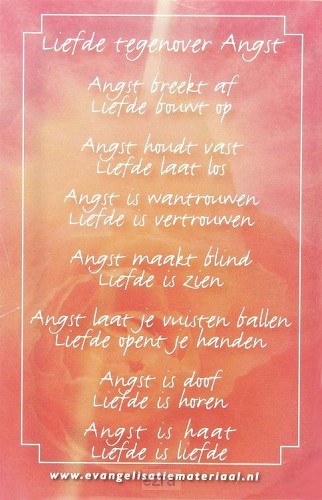 Liefde tegenover Angst
Angst breekt af
Liefde bouwt op
Angst houdt vast
Liefde laat los
Angst is wantrouwen
Liefde is vertrouwen
Angst maakt blind
Liefde is zien
Angst laat je vuisten ballen
Liefde opent je handen
Angst is doof
Liefde is horen
Angst is haat
Liefde is liefde
www.evangelisatiemateriaal.nl
ezra